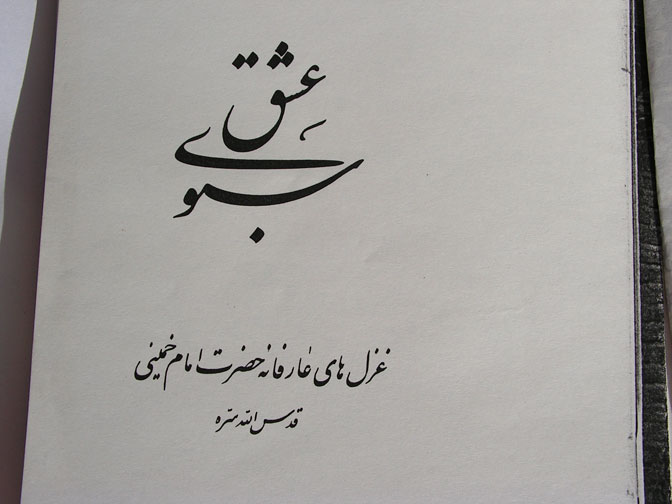 سبوی
عِشق
غزل های عارفانه حضرت امام خمینی
قدس الله سره